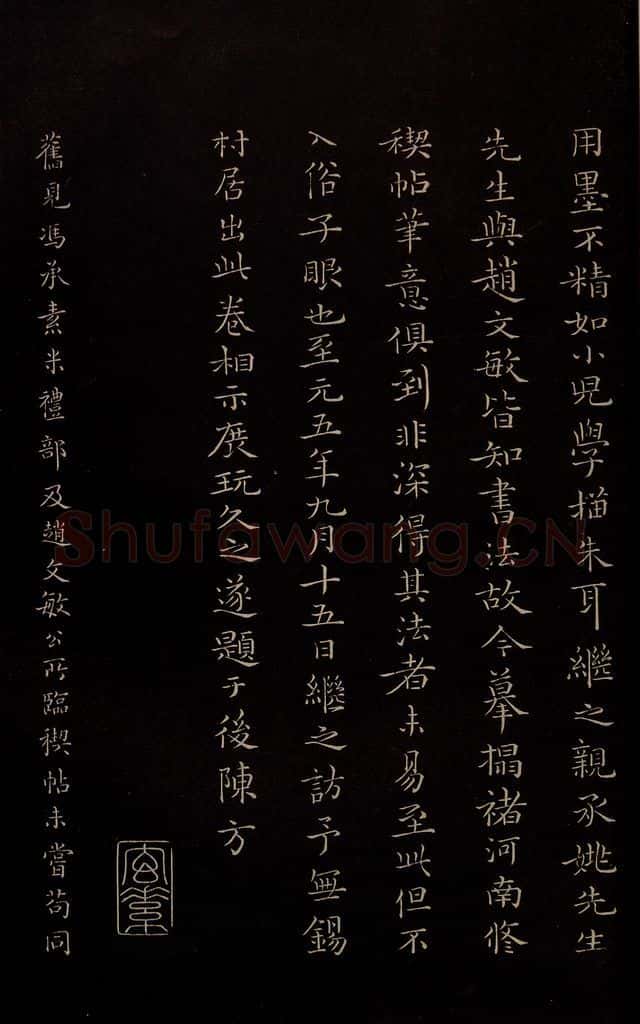 用墨不精如小兒學描朱耳繼之親承姚先生
先生與趙文敏皆知書法故今摹搨褚河南修
禊帖筆意俱到非深得其法者未易至此但不
入俗子眼也至元五年九月十五日繼之訪予無錫
村居出此卷相示展玩久之遂題于後陳方
舊見馮承素米禮部及趙文敏公所臨禊帖未嘗苟同
Shufawang.CN